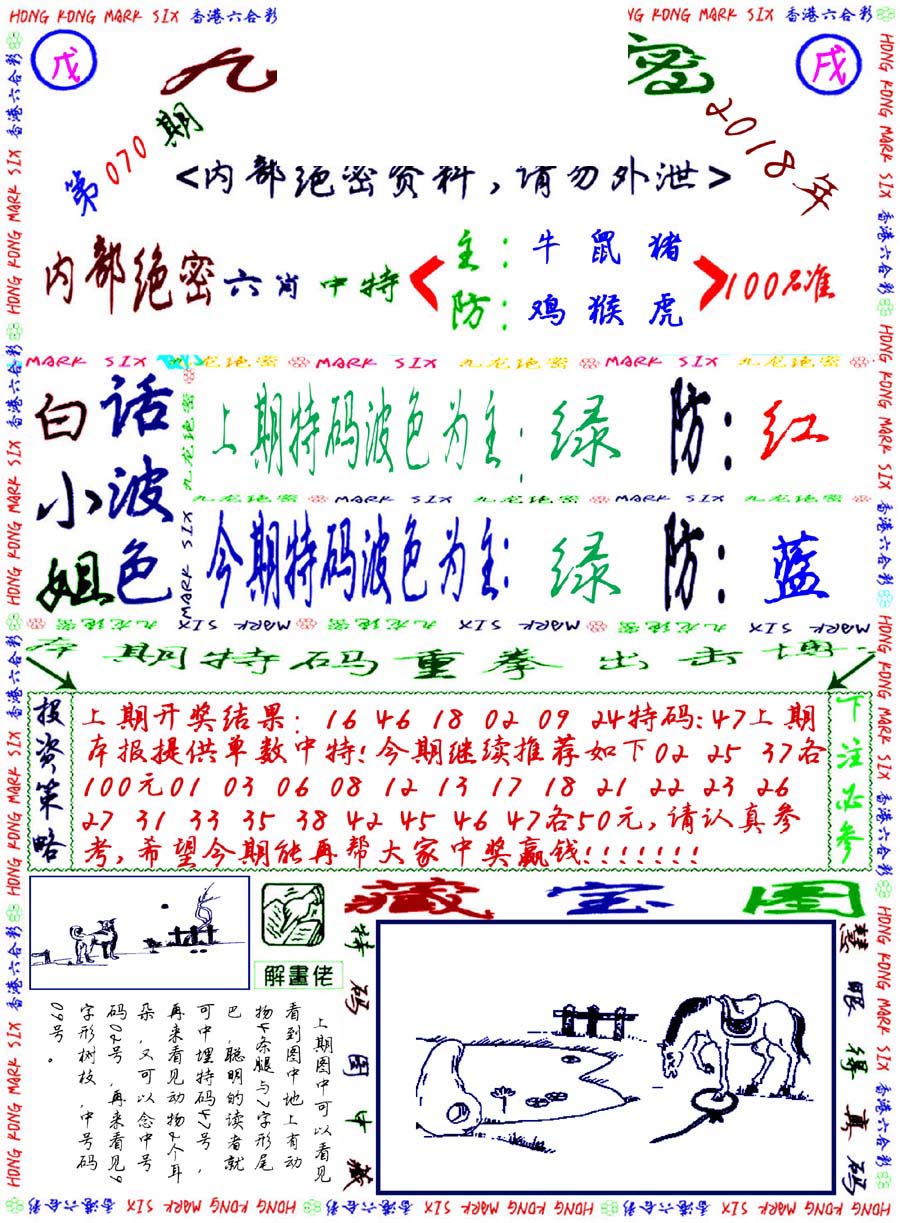 HONG KONG MARK SIX 香港六合彩
NG KONG MARK SIX 香港六合彩
戊 九 密 戌
第070期 2018年
<内部绝密资料,请勿外泄>
内部绝密六肖中特
主:牛 鼠 猪
防:鸡 猴 虎
100%准
MARK SIX 九龙绝密 MARK SIX 九龙绝密 MARK SIX 九龙绝密
白话
小波
姐色
上期特码波色为主:绿 防:红
九龙绝密 MARK SIX 九龙绝密 MARK SIX 九龙绝密
今期特码波色为主:绿 防:蓝
九龙绝密 MARK SIX 九龙绝密 MARK SIX 九龙绝密 MARK SIX
期特码重拳出击
投资策略
上期开奖结果: 16 46 18 02 09 24特码:47上期
本报提供单数中特!今期继续推荐如下02 25 37各
100元01 03 06 08 12 13 17 18 21 22 23 26
27 31 33 35 38 42 45 46 47各50元,请认真参
考,希望今期能再帮大家中奖赢钱!!!!!!!
下注必参
藏宝图
解畫佬
特码图中藏
慧眼得真码
上期图中可以看见
看到图中地上有动
物4条腿与7字形尾
巴,聪明的读者就
可中埋特码47号,
再来看见动物2个耳
朵,又可以念中号
码02号,再来看见9
字形树枝,中号码
09号。
HONG KONG MARK SIX 香港六合彩 HONG KONG MARK SIX 香港六合彩 HONG KONG MARK SIX 香港六合彩